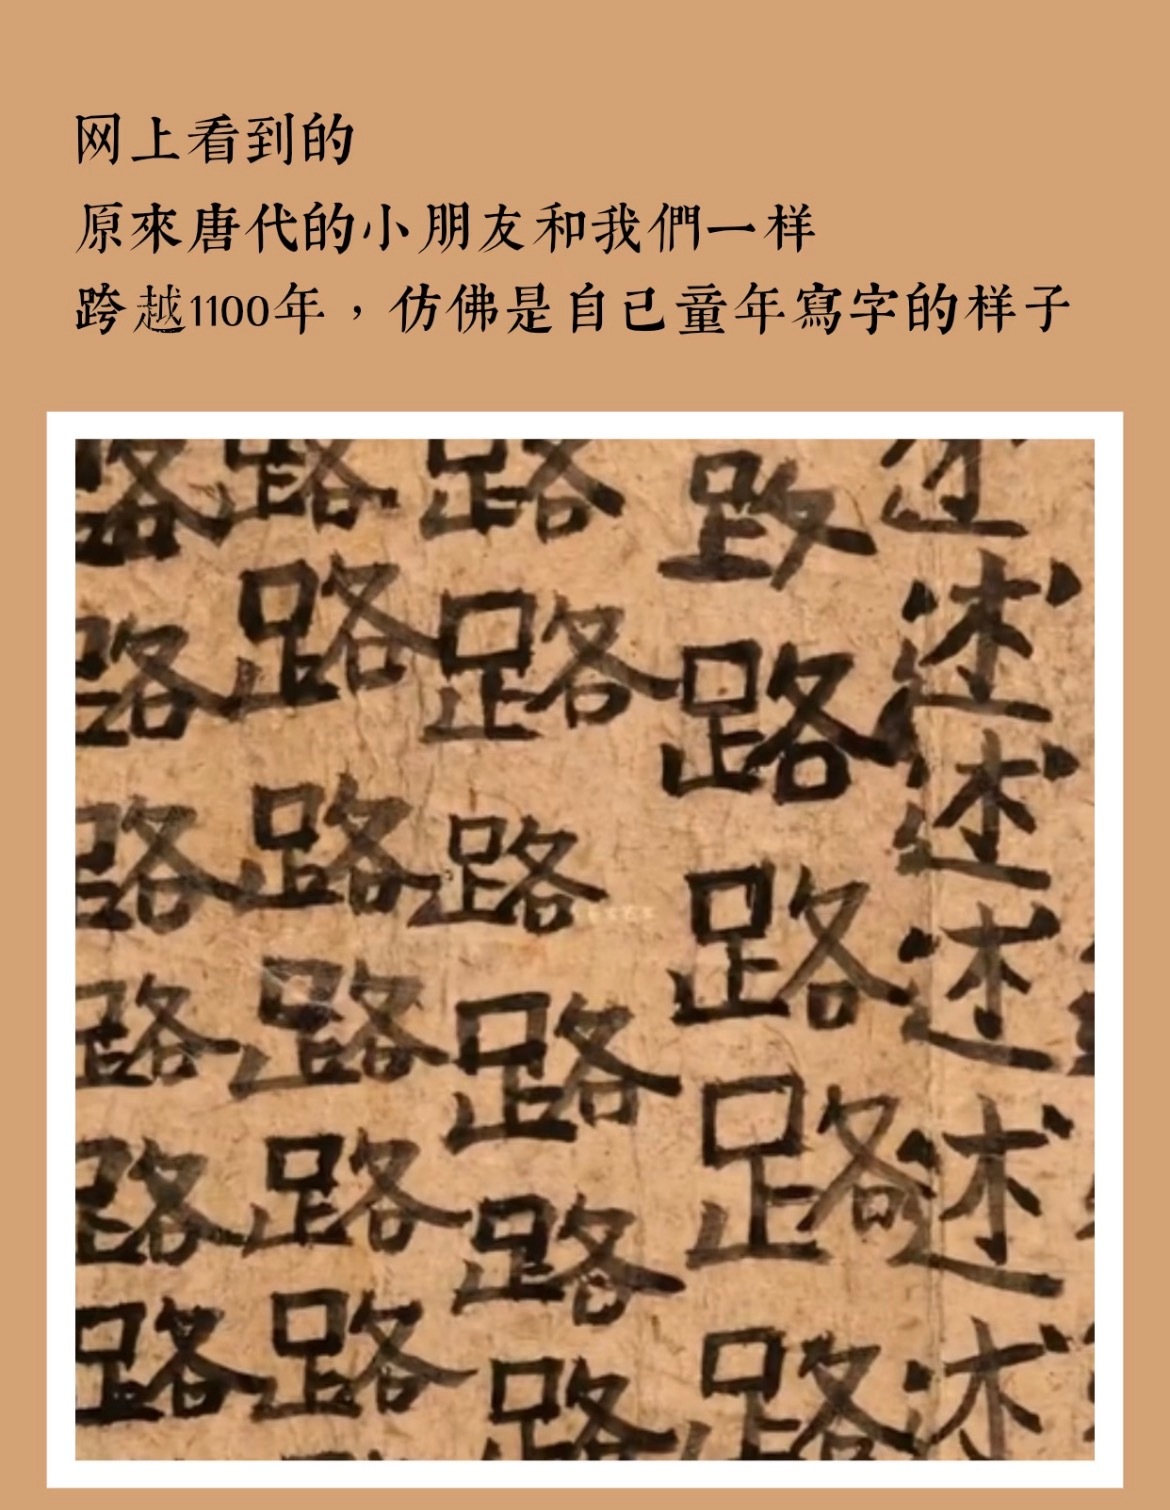 网上看到的
原來唐代的小朋友和我們一样
跨越1100年，仿佛是自己童年寫字的样子
述述述述述述
路路路路
路路路路路路
路路路路路路
路路路路路路